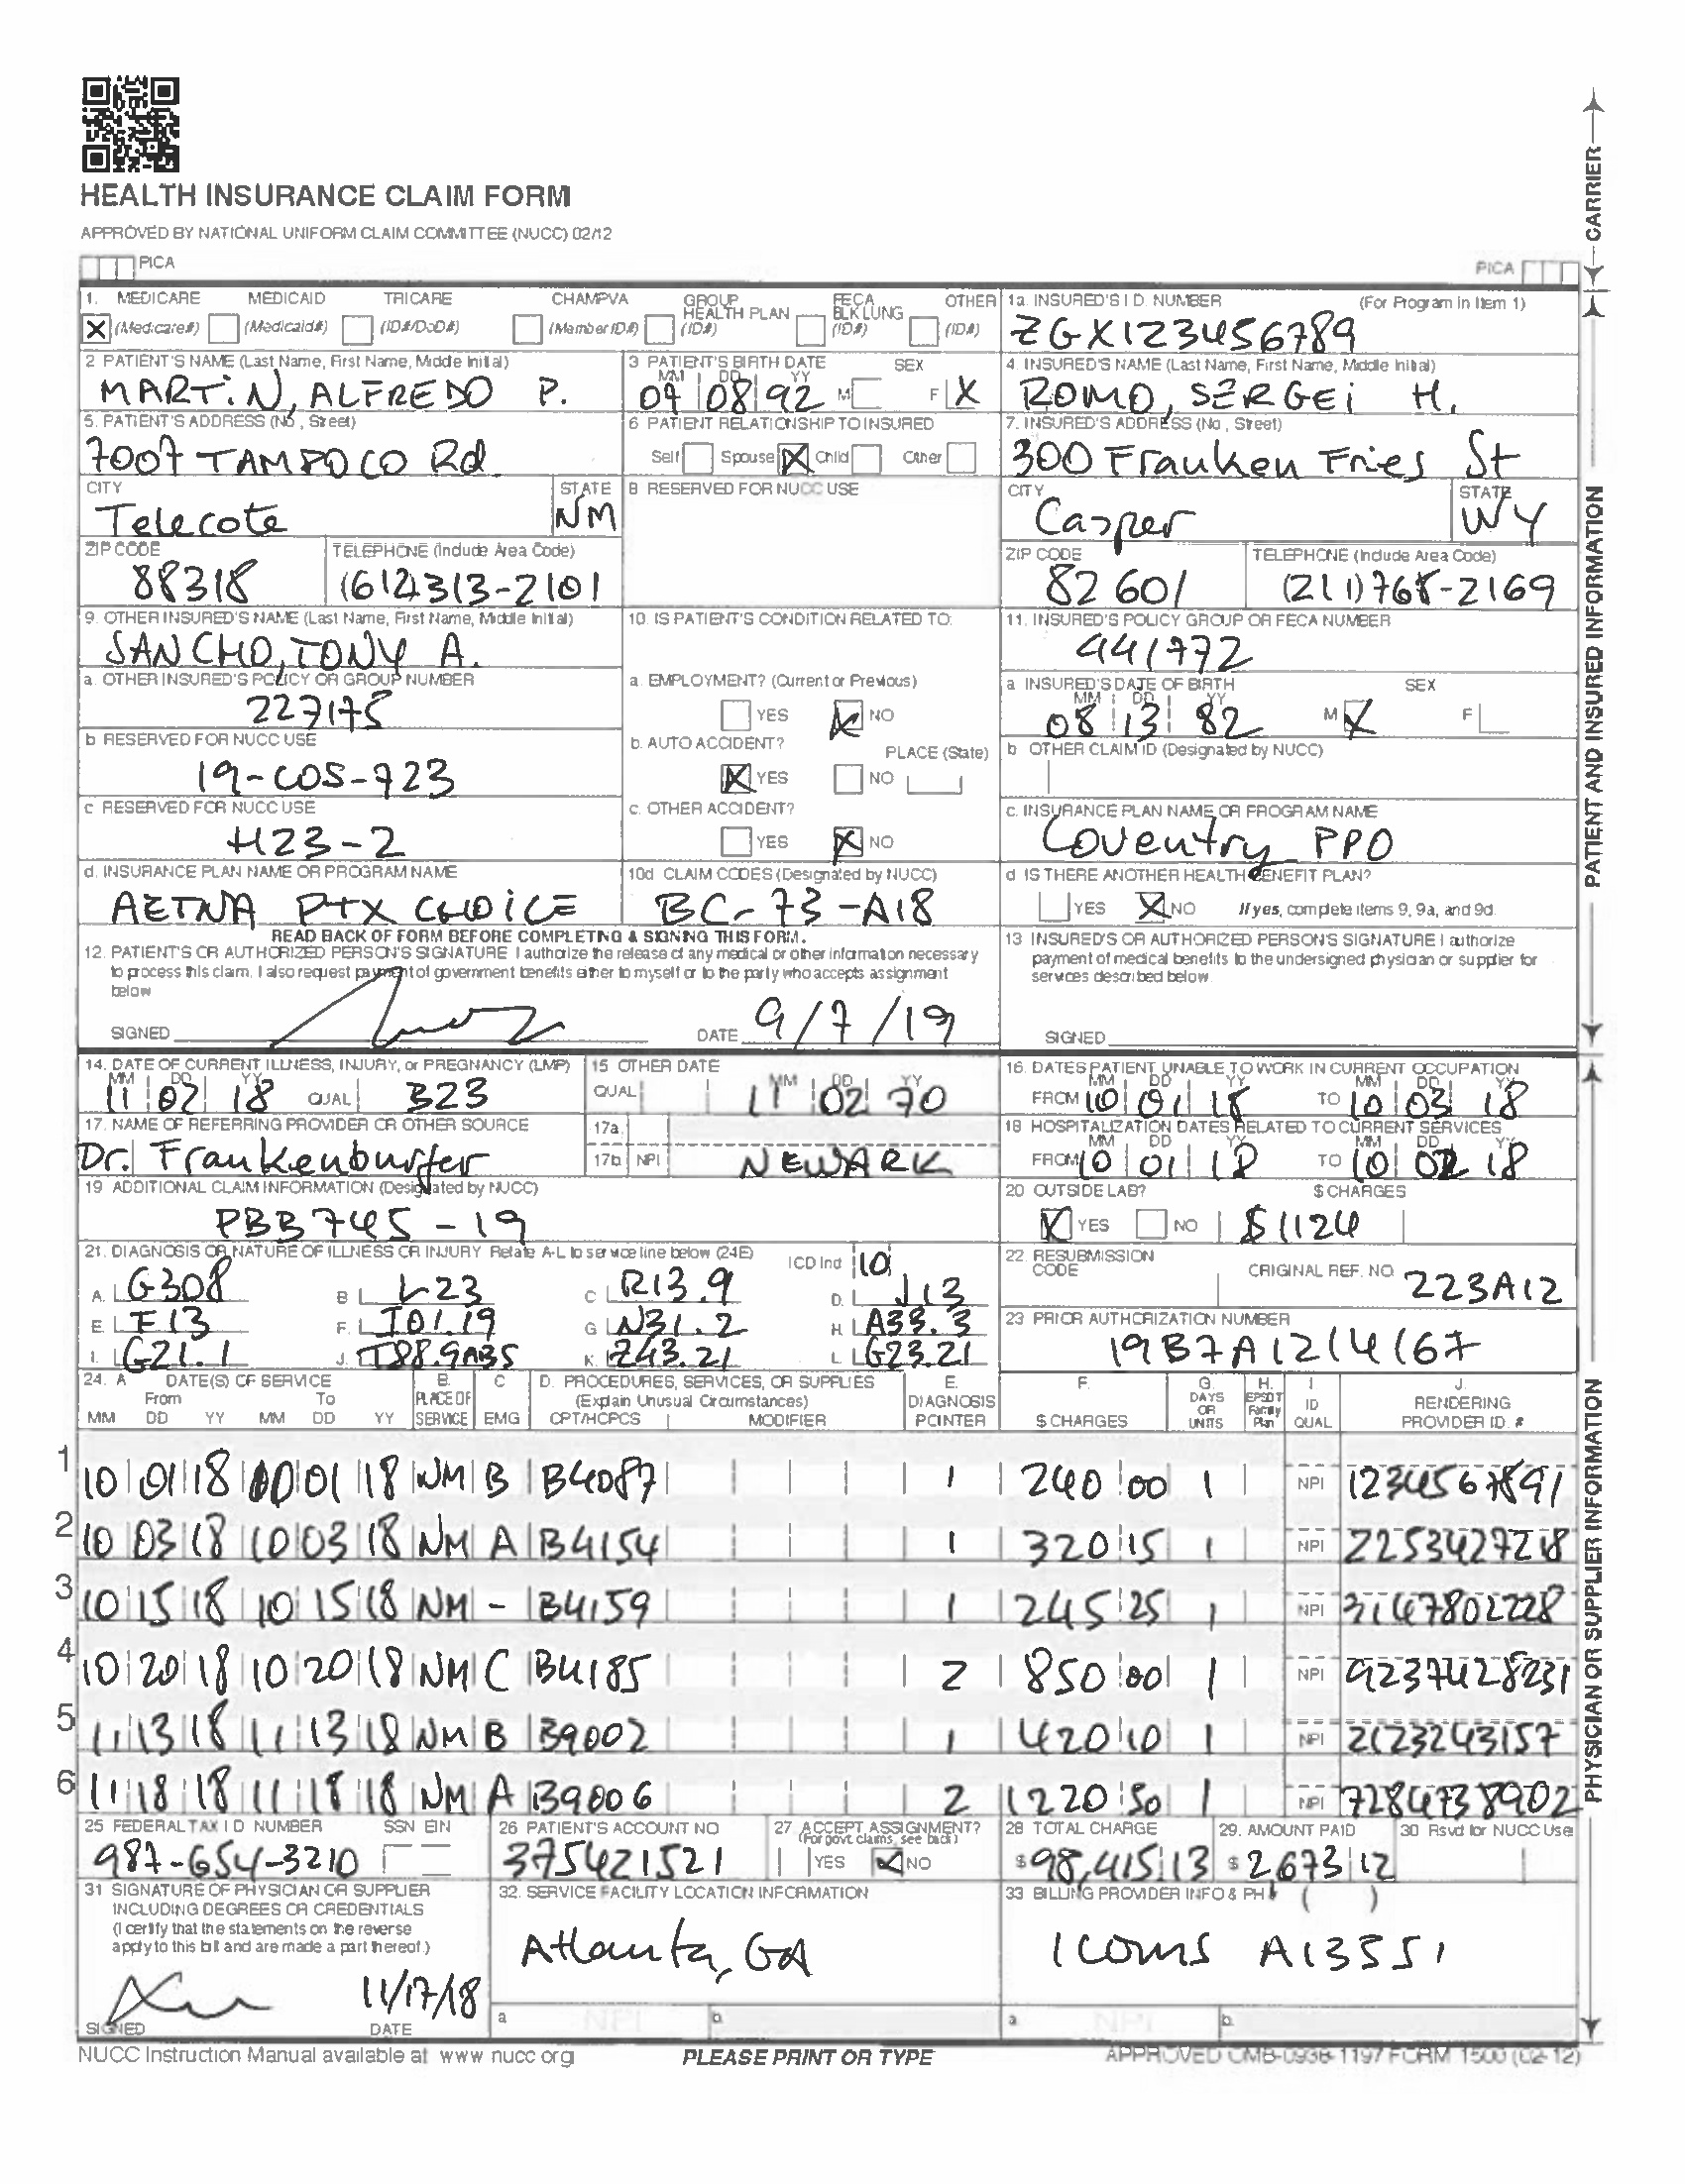 HEALTH INSURANCE CLAIM FORM
APPROVED BY NATIONAL UNIFORM CLAIM COMMITTEE (NUCC) 02/12
PICA
PICA
CARRIER
1. MEDICARE MEDICAID TRICARE CHAMPVA GROUP HEALTH PLAN FECA BLK LUNG OTHER
(Medicare#) (Medicaid#) (ID#/DoD#) (Member ID#) (ID#) (ID#) (ID#)
1a. INSURED'S I.D. NUMBER (For Program in Item 1)
ZGX123456789
2. PATIENT'S NAME (Last Name, First Name, Middle Initial)
MARTiN, ALFREDO P.
3. PATIENT'S BIRTH DATE SEX
MM DD YY
09 08 92 M F X
4. INSURED'S NAME (Last Name, First Name, Middle Initial)
ROMO, SERGEi H.
5. PATIENT'S ADDRESS (No., Street)
7007 TAMPOCO Rd.
6. PATIENT RELATIONSHIP TO INSURED
Self Spouse X Child Other
7. INSURED'S ADDRESS (No., Street)
300 Franken Fries St
CITY STATE
Telecote NM
8. RESERVED FOR NUCC USE
CITY STATE
Casper WY
ZIP CODE TELEPHONE (Include Area Code)
88318 (612)313-2101
ZIP CODE TELEPHONE (Include Area Code)
82601 (211)768-2169
9. OTHER INSURED'S NAME (Last Name, First Name, Middle Initial)
SANCHO, TONY A.
10. IS PATIENT'S CONDITION RELATED TO:
11. INSURED'S POLICY GROUP OR FECA NUMBER
441772
a. OTHER INSURED'S POLICY OR GROUP NUMBER
227175
a. EMPLOYMENT? (Current or Previous)
YES X NO
a. INSURED'S DATE OF BIRTH SEX
MM DD YY
08 13 82 M X F
b. RESERVED FOR NUCC USE
19-COS-723
b. AUTO ACCIDENT? PLACE (State)
X YES NO
b. OTHER CLAIM ID (Designated by NUCC)
c. RESERVED FOR NUCC USE
H23-2
c. OTHER ACCIDENT?
YES X NO
c. INSURANCE PLAN NAME OR PROGRAM NAME
Coventry PPO
d. INSURANCE PLAN NAME OR PROGRAM NAME
AETNA PTX CHOiCE
10d. CLAIM CODES (Designated by NUCC)
BC-73-A18
d. IS THERE ANOTHER HEALTH BENEFIT PLAN?
YES X NO If yes, complete items 9, 9a, and 9d.
READ BACK OF FORM BEFORE COMPLETING & SIGNING THIS FORM.
12. PATIENT'S OR AUTHORIZED PERSON'S SIGNATURE I authorize the release of any medical or other information necessary
to process this claim. I also request payment of government benefits either to myself or to the party who accepts assignment
below
SIGNED DATE 9/7/19
13. INSURED'S OR AUTHORIZED PERSON'S SIGNATURE I authorize
payment of medical benefits to the undersigned physician or supplier for
services described below.
SIGNED
PATIENT AND INSURED INFORMATION
14. DATE OF CURRENT ILLNESS, INJURY, or PREGNANCY (LMP)
MM DD YY
11 02 18 QUAL. 323
15. OTHER DATE
QUAL. MM DD YY
11 02 70
16. DATES PATIENT UNABLE TO WORK IN CURRENT OCCUPATION
MM DD YY MM DD YY
FROM 10 01 18 TO 10 03 18
17. NAME OF REFERRING PROVIDER OR OTHER SOURCE
Dr. Frankenburger
17a.
17b. NPI NEWARK
18. HOSPITALIZATION DATES RELATED TO CURRENT SERVICES
MM DD YY MM DD YY
FROM 10 01 18 TO 10 02 18
19. ADDITIONAL CLAIM INFORMATION (Designated by NUCC)
PBB745-19
20. OUTSIDE LAB? $ CHARGES
X YES NO $1124
21. DIAGNOSIS OR NATURE OF ILLNESS OR INJURY Relate A-L to service line below (24E) ICD Ind. 10
A. G308 B. L23 C. R13.9 D. J13
E. F13 F. I01.19 G. N31.2 H. A33.3
I. G21.1 J. T88.9AB5 K. Z43.21 L. G23.21
22. RESUBMISSION CODE ORIGINAL REF. NO.
223A12
23. PRIOR AUTHORIZATION NUMBER
19B7A1214167
24. A. DATE(S) OF SERVICE B. C. D. PROCEDURES, SERVICES, OR SUPPLIES E. F. G. H. I. J.
From To PLACE OF (Explain Unusual Circumstances) DIAGNOSIS DAYS OR EPSDT Family ID RENDERING
MM DD YY MM DD YY SERVICE EMG CPT/HCPCS MODIFIER POINTER $ CHARGES UNITS Plan QUAL. PROVIDER ID. #
1 10 01 18 10 01 18 NM B B4087 1 240 00 1 NPI 1234567891
2 10 03 18 10 03 18 NM A B4154 1 320 15 1 NPI 2253427218
3 10 15 18 10 15 18 NM - B4159 1 245 25 1 NPI 3147802228
4 10 20 18 10 20 18 NM C B4185 2 850 00 1 NPI 9237428231
5 11 13 18 11 13 18 NM B B9002 1 420 10 1 NPI 2123243157
6 11 18 18 11 18 18 NM A B9006 2 1220 50 1 NPI 7284738902
25. FEDERAL TAX I.D. NUMBER SSN EIN
987-654-3210
26. PATIENT'S ACCOUNT NO.
375421521
27. ACCEPT ASSIGNMENT?
(For govt. claims, see back)
YES X NO
28. TOTAL CHARGE
$ 98,415 13
29. AMOUNT PAID
$ 2,673 12
30. Rsvd for NUCC Use
31. SIGNATURE OF PHYSICIAN OR SUPPLIER
INCLUDING DEGREES OR CREDENTIALS
(I certify that the statements on the reverse
apply to this bill and are made a part thereof.)
11/17/18
SIGNED DATE
32. SERVICE FACILITY LOCATION INFORMATION
Atlanta, GA
a. NPI b.
33. BILLING PROVIDER INFO & PH # ( )
1 Coms A13551
a. NPI b.
PHYSICIAN OR SUPPLIER INFORMATION
NUCC Instruction Manual available at: www.nucc.org
PLEASE PRINT OR TYPE
APPROVED OMB-0938-1197 FORM 1500 (02-12)